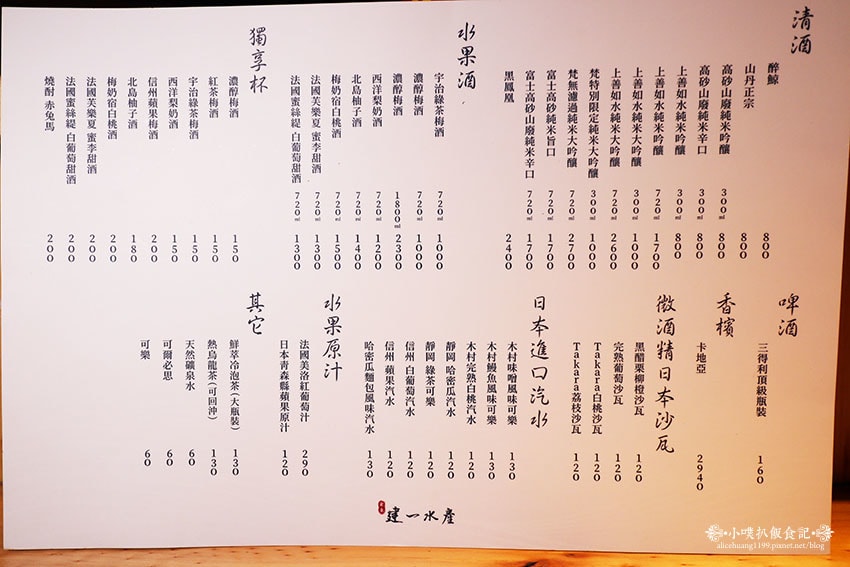 清酒
醉鯨 800
山丹正宗 800
高砂山廢純米吟釀 300ml 800
高砂山廢純米辛口 300ml 800
上善如水純米吟釀 300ml 800
上善如水純米吟釀 720ml 1700
上善如水純米大吟釀 300ml 1000
上善如水純米大吟釀 720ml 2600
梵特別限定純米大吟釀 300ml 1000
梵無濾過純米大吟釀 720ml 2700
富士高砂純米旨口 720ml 1700
富士高砂山廢純米辛口 720ml 1700
黑鳳凰 2400
水果酒
宇治綠茶梅酒 720ml 1000
濃醇梅酒 720ml 1000
濃醇梅酒 1800ml 2300
西洋梨奶酒 720ml 1200
北島柚子酒 720ml 1400
梅奶宿白桃酒 720ml 1500
法國芙樂夏 蜜李甜酒 720ml 1300
法國蜜絲緹 白葡萄甜酒 720ml 1300
獨享杯
濃醇梅酒 150
紅茶梅酒 150
宇治綠茶梅酒 150
西洋梨奶酒 150
信州蘋果梅酒 200
北島柚子酒 180
梅奶宿白桃酒 200
法國芙樂夏 蜜李甜酒 200
法國蜜絲緹 白葡萄甜酒 200
燒酎 赤兔馬 200
啤酒
三得利頂級瓶裝 160
香檳
卡地亞 2940
微酒精日本沙瓦
黑醋栗柳橙沙瓦 120
完熟葡萄沙瓦 120
Takara白桃沙瓦 120
Takara荔枝沙瓦 120
日本進口汽水
木村味噌風味可樂 130
木村鰻魚風味可樂 130
木村完熟白桃汽水 120
靜岡 哈密瓜汽水 120
靜岡 綠茶可樂 120
信州 白葡萄汽水 120
信州 蘋果汽水 120
哈密瓜麵包風味汽水 130
水果原汁
法國美洛紅葡萄汁 290
日本青森縣蘋果原汁 120
其它
鮮萃冷泡茶(大瓶裝) 130
熱烏龍茶(可回沖) 130
天然礦泉水 60
可爾必思 60
可樂 60
建一水產
小噗扒飯食記
alicehuang1199.pixnet.net/blog